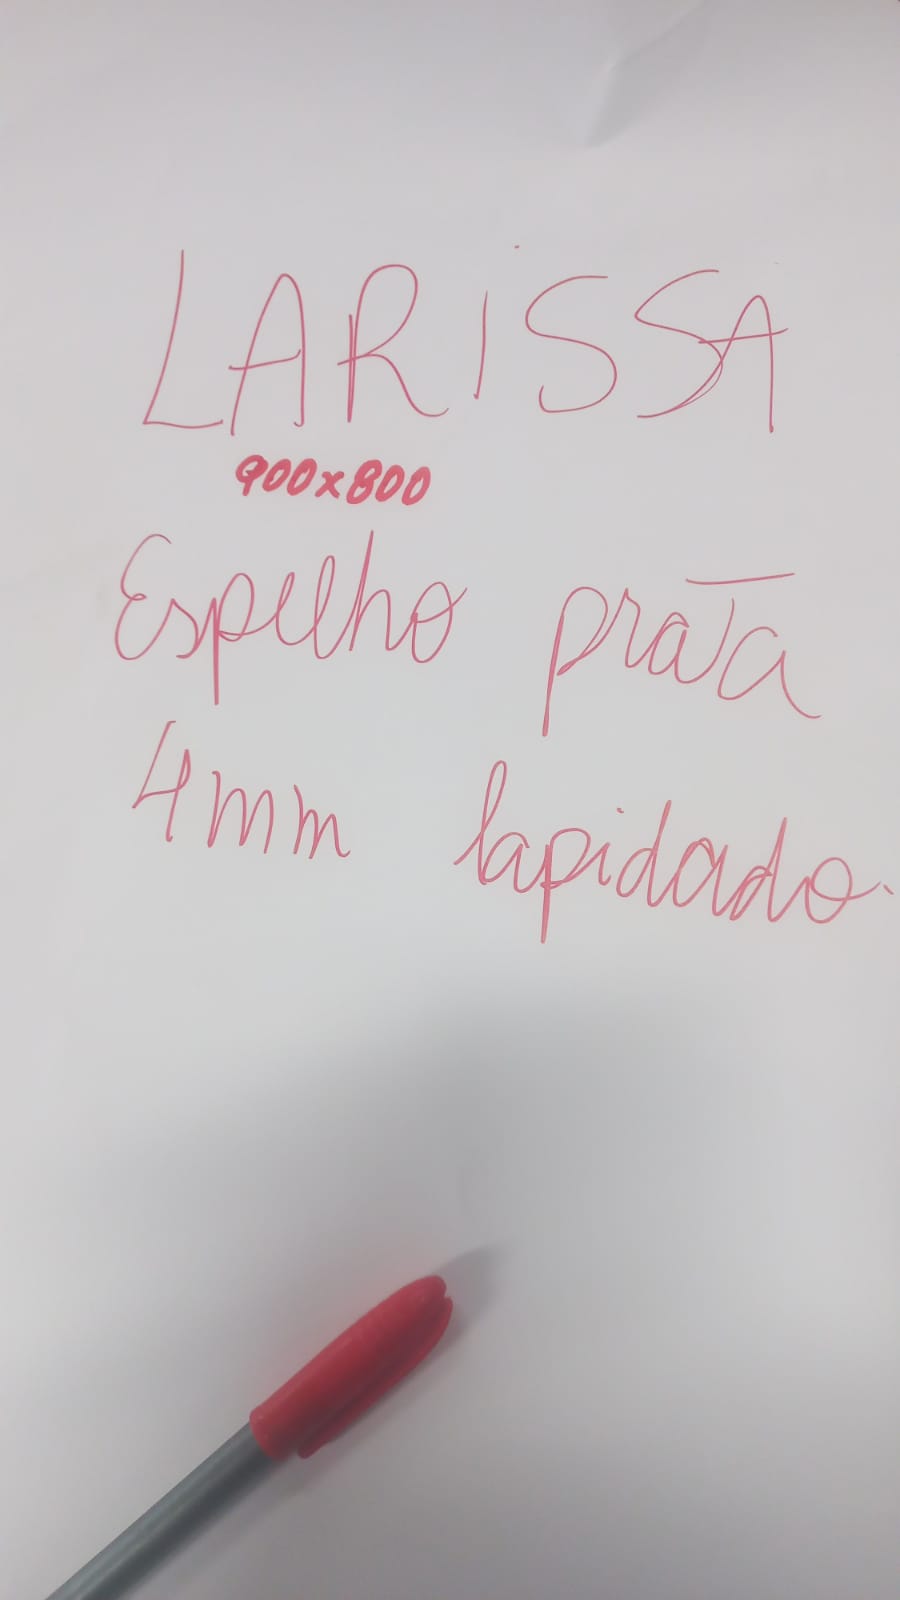 LARISSA
900x800
Espelho prata
4mm lapidado.